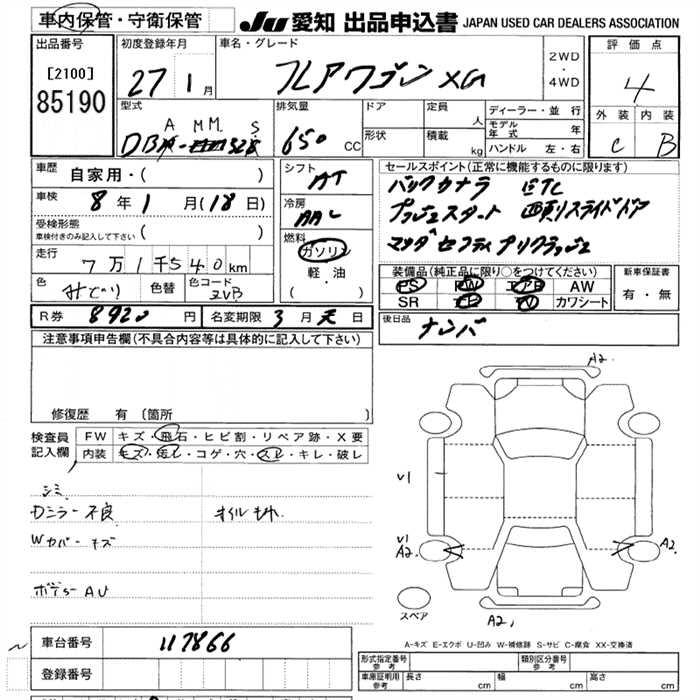 車内保管・守衛保管 JU 愛知 出品申込書 JAPAN USED CAR DEALERS ASSOCIATION
出品番号 初度登録年月 車名・グレード 評価点
[2100] 85190 27 1月 フレアワゴン XG 2WD・4WD 4
型式 排気量 ドア 定員 人 ディーラー・並行 外装 内装
650 CC 形状 積載 kg モデル年式 年 C B
ハンドル 左・右
車歴 自家用・( ) シフト AT セールスポイント(正常に機能するものに限ります)
車検 8年1月(18日) 冷房 AAC バックカメラ ETC
受検形態 車検付きのみ記入して下さい ( ) プッシュスタート 両側スライドドア
走行 7万1千540km 燃料 ガソリン 軽・油 ( )
色 色替 色コード ZVB 装備品(純正品に限り○をつけてください) 新車保証書
PS PW エアB AW 有・無
SR ナビ TV カワシート
R券 8920円 名変期限 3月末日 後日品 ナンバ
注意事項申告欄(不具合内容等は具体的に記入して下さい)
修復歴 有 [箇所 ]
検査員記入欄 FW キズ・飛石・ヒビ割・リペア跡・X要
内装 キズ・汚レ・コゲ・穴・スレ・キレ・破レ
シミ
Dミラー不良 オイルもれ
Wカバーキズ
ボデーAU
A2
V1
V1
A2
A2
スペア A2
A-キズ E-エクボ U-凹み W-補修跡 S-サビ C-腐食 XX-交換済
車台番号 117866 形式指定番号 参考 類別区分番号 参考
登録番号 車庫証明用 参考 長さ cm 幅 cm 高さ cm